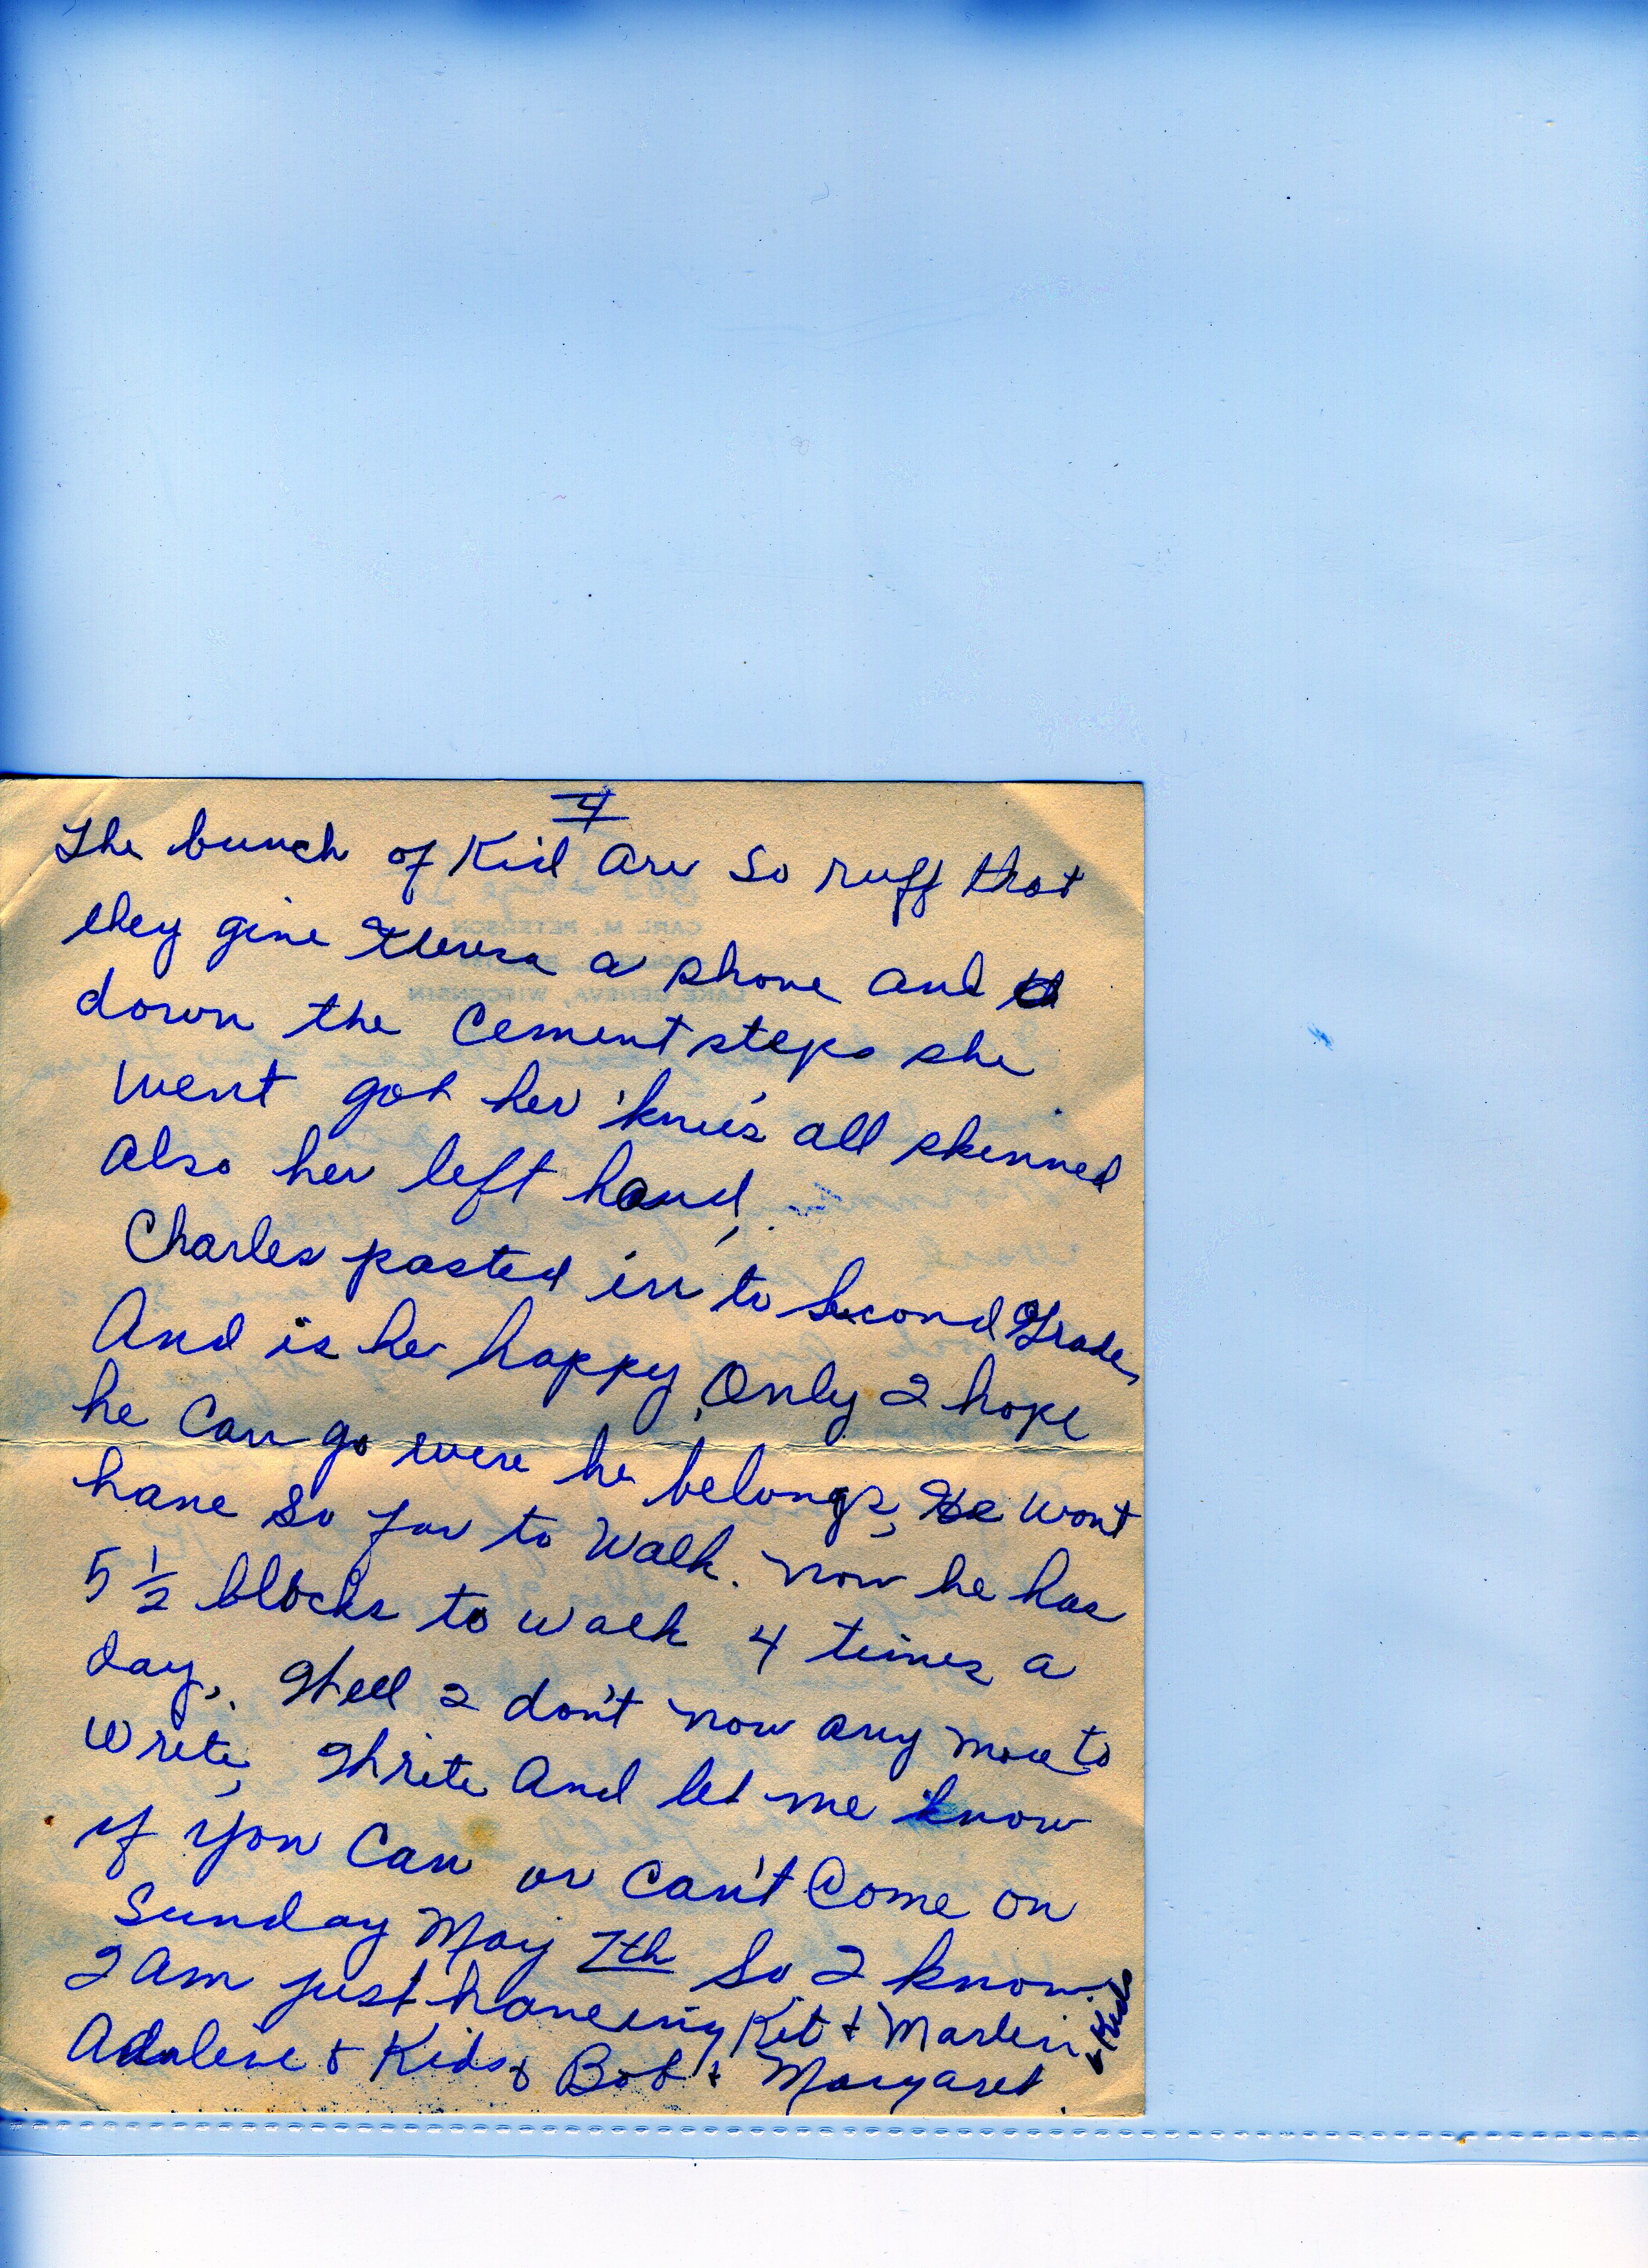 4
The bunch of Kid are so ruff that
they give teresa a shove and
down the Cement steps she
went got her knee's all skinned
also her left hand,.
Charles pasted in to Second Grade,
And is he happy, Only I hope
he Can go were he belongs, He wont
have so far to walk. now he has
5 1/2 blocks to walk 4 times a
day,. Well I don't now any more to
write, Write And let me know
if you Can or can't Come on
Sunday May 7th So I know.
I am just haveing Kit & Marlin & Kids
Adaline & Kids & Bob & Margaret.
CARL M. PETERSON
LAKE GENEVA, WISCONSIN